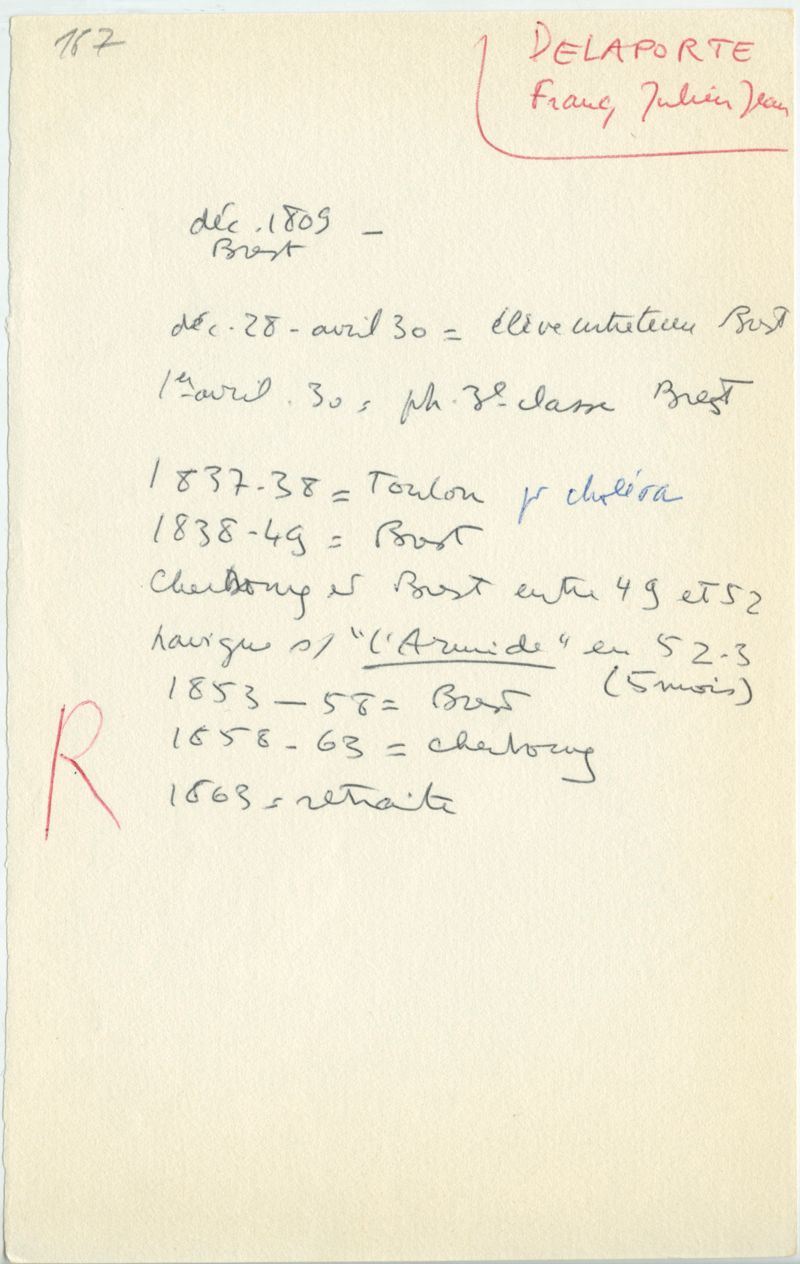 167
DELAPORTE
Franç Julien Jean
déc. 1809 –
Brest
déc. 28 - avril 30 = élève entretenu Brest
1er avril. 30 = ph. 3e classe Brest
1837-38 = Toulon pr choléra
1838-49 = Brest
Cherbourg et Brest entre 49 et 52
navigue s/ "l'Armide" en 52-3
(5 mois)
1853 – 58 = Brest
1858 - 63 = Cherbourg
R
1863 = retraite